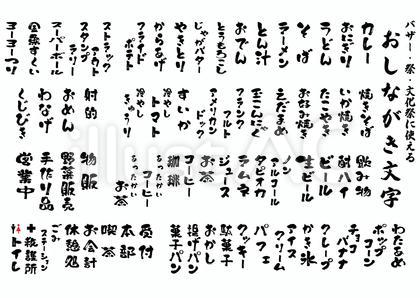 バザー・祭・文化祭に使える
おしながき文字
カレー
おにぎり
うどん
そば
ラーメン
とん汁
おでん
とうもろこし
じゃがバター
やきとり
からあげ
フライドポテト
ストラックアウト
スタンプラリー
スーパーボール
金魚すくい
ヨーヨーつり
焼きそば
いか焼き
たこやき
お好み焼き
えだまめ
玉こんにゃく
フランクフルト
アメリカンドッグ
すいか
冷やしトマト
冷やしきゅうり
射的
おめん
わなげ
くじびき
飲み物
酎ハイ
ビール
生ビール
ノンアルコール
タピオカ
ラムネ
ジュース
お茶
コーヒー
珈琲
あったかいコーヒー
あったかいお茶
物販
野菜販売
手作り品
営業中
わたあめ
ポップコーン
チョコバナナ
クレープ
かき氷
アイスクリーム
パフェ
クッキー
おかし
揚げパン
菓子パン
受付
本部
喫茶
お会計
休憩処
ごみステーション
救護所
トイレ